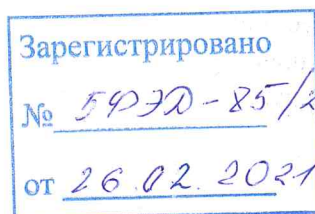 Зарегистрировано
№ 5ФЭД-85/2
от 26.02.2021